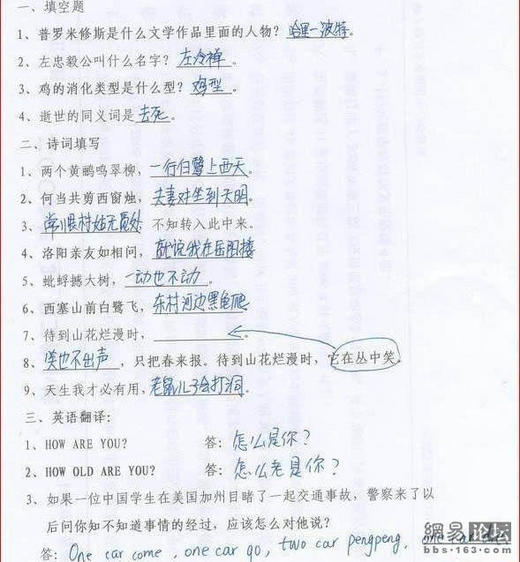 一、填空题
1、普罗米修斯是什么文学作品里面的人物？哈里-波特。
2、左忠毅公叫什么名字？左冷禅。
3、鸡的消化类型是什么型？鸡型。
4、逝世的同义词是去死。
二、诗词填写
1、两个黄鹂鸣翠柳，一行白鹭上西天。
2、何当共剪西窗烛，夫妻对坐到天明。
3、常恨村姑无觅处 不知转入此中来。
4、洛阳亲友如相问，就说我在岳阳楼
5、蚍蜉撼大树，一动也不动。
6、西塞山前白鹭飞，东村河边黑龟爬
7、待到山花烂漫时，
8、笑也不出声，只把春来报。待到山花烂漫时，它在丛中笑。
9、天生我才必有用，老鼠儿子会打洞。
三、英语翻译：
1、HOW ARE YOU? 答：怎么是你？
2、HOW OLD ARE YOU? 答：怎么老是你？
3、如果一位中国学生在美国加州目睹了一起交通事故，警察来了以
后问你知不知道事情的经过，应该怎么对他说？
答：One car come, one car go, two car pengpeng, one car
網易论坛
bbs·163.com